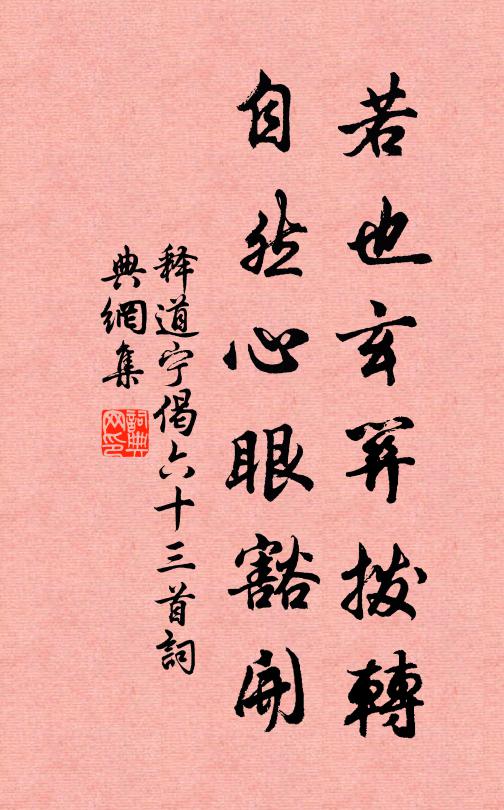 若也玄关拨轉
自然心眼豁開
释道宁偈六十三首詞
典網集
詞典網印